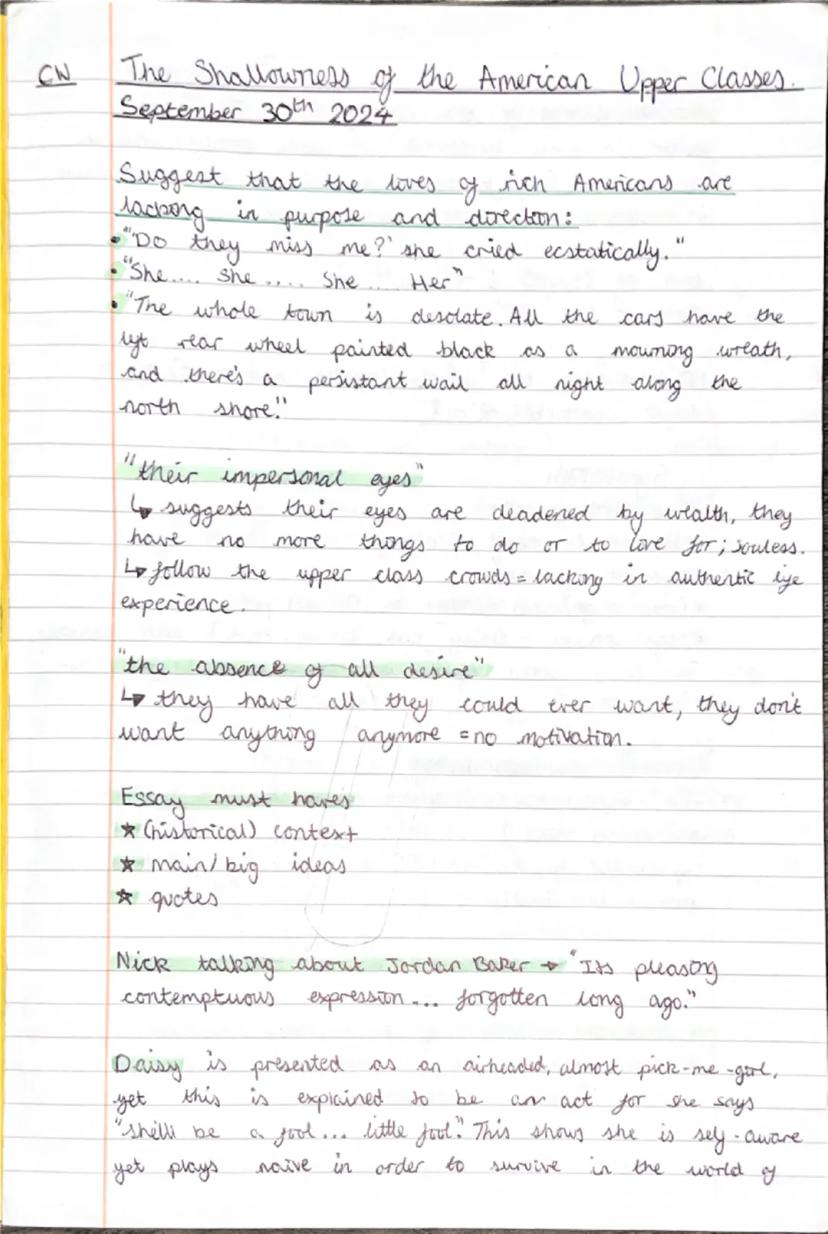 CW The Shallowness of the American Upper Classes.
September 30th 2024
Suggest that the lives of rich Americans are
lacking in purpose and direction:
• "'Do they miss me?' she cried ecstatically."
• "She.... she .... She .... Her"
• "The whole town is desolate. All the cars have the
left rear wheel painted black as a mourning wreath,
and there's a persistant wail all night along the
north shore."
"their impersonal eyes"
↳ suggests their eyes are deadened by wealth, they
have no more things to do or to love for; souless.
↳ follow the upper class crowds = lacking in authentic life
experience.
"the absence of all desire"
↳ they have all they could ever want, they don't
want anything anymore = no motivation.
Essay must haves
☆ (historical) context
☆ main/big ideas
☆ quotes
Nick talking about Jordan Baker → "Its pleasing
contemptuous expression... forgotten long ago."
Daisy is presented as an airheaded, almost pick-me-girl,
yet this is explained to be an act for she says
"she'll be a fool... little fool". This shows she is self-aware
yet plays naive in order to survive in the world of